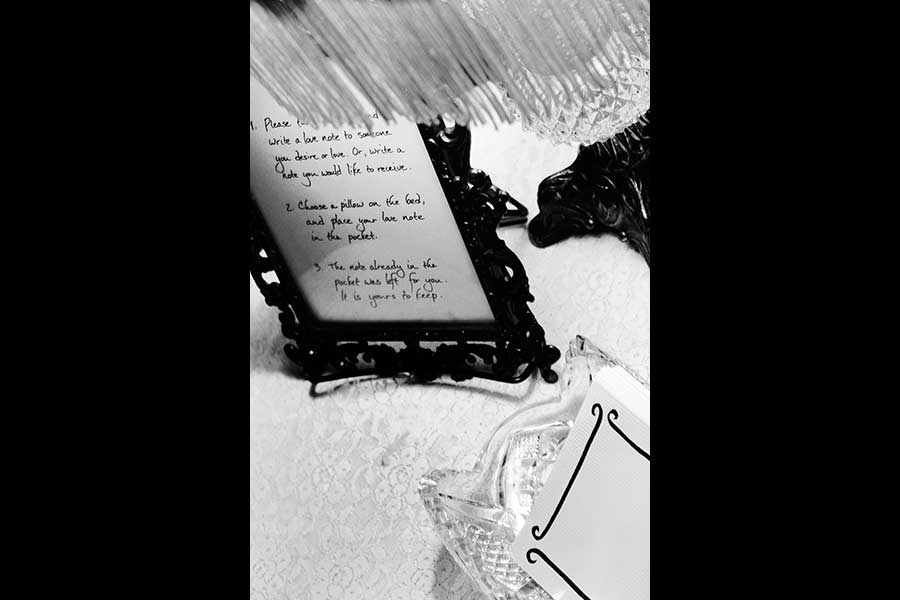 1. Please
write a love note to someone
you desire or love. Or, write a
note you would like to receive.
2. Choose a pillow on the bed,
and place your love note
in the pocket.
3. The note already in the
pocket was left for you.
It is yours to keep.